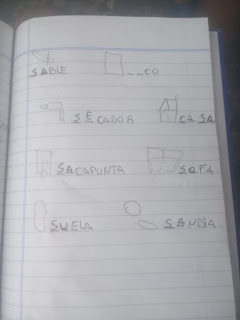 SABLE __CO
SECADOR CASA
SACAPUNTA SOFA
SUELA SANDIA